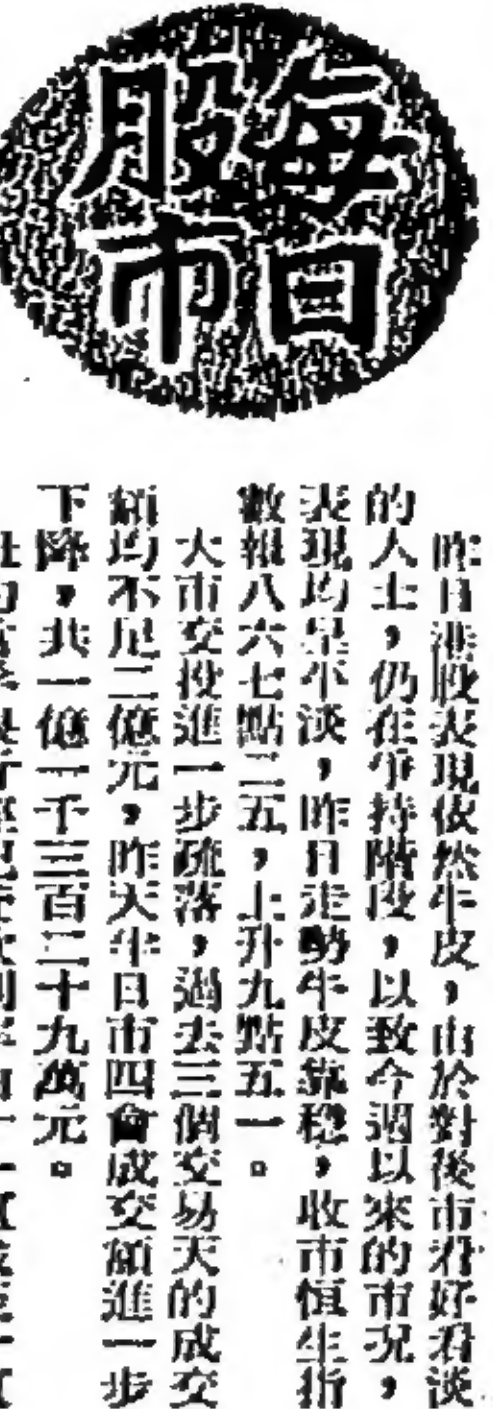 每日
股市
昨日港股表現依然牛皮，由於對後市看好看淡
的人士，仍在爭持階段，以致今週以來的市況，
表現均呈平淡，昨日走勢牛皮靠穩，收市恒生指
數報八六七點二五，上升九點五一。
大市交投進一步疏落，過去三個交易天的成交
額均不足二億元，昨天半日市四會成交額進一步
下降，共一億一千三百二十九萬元。